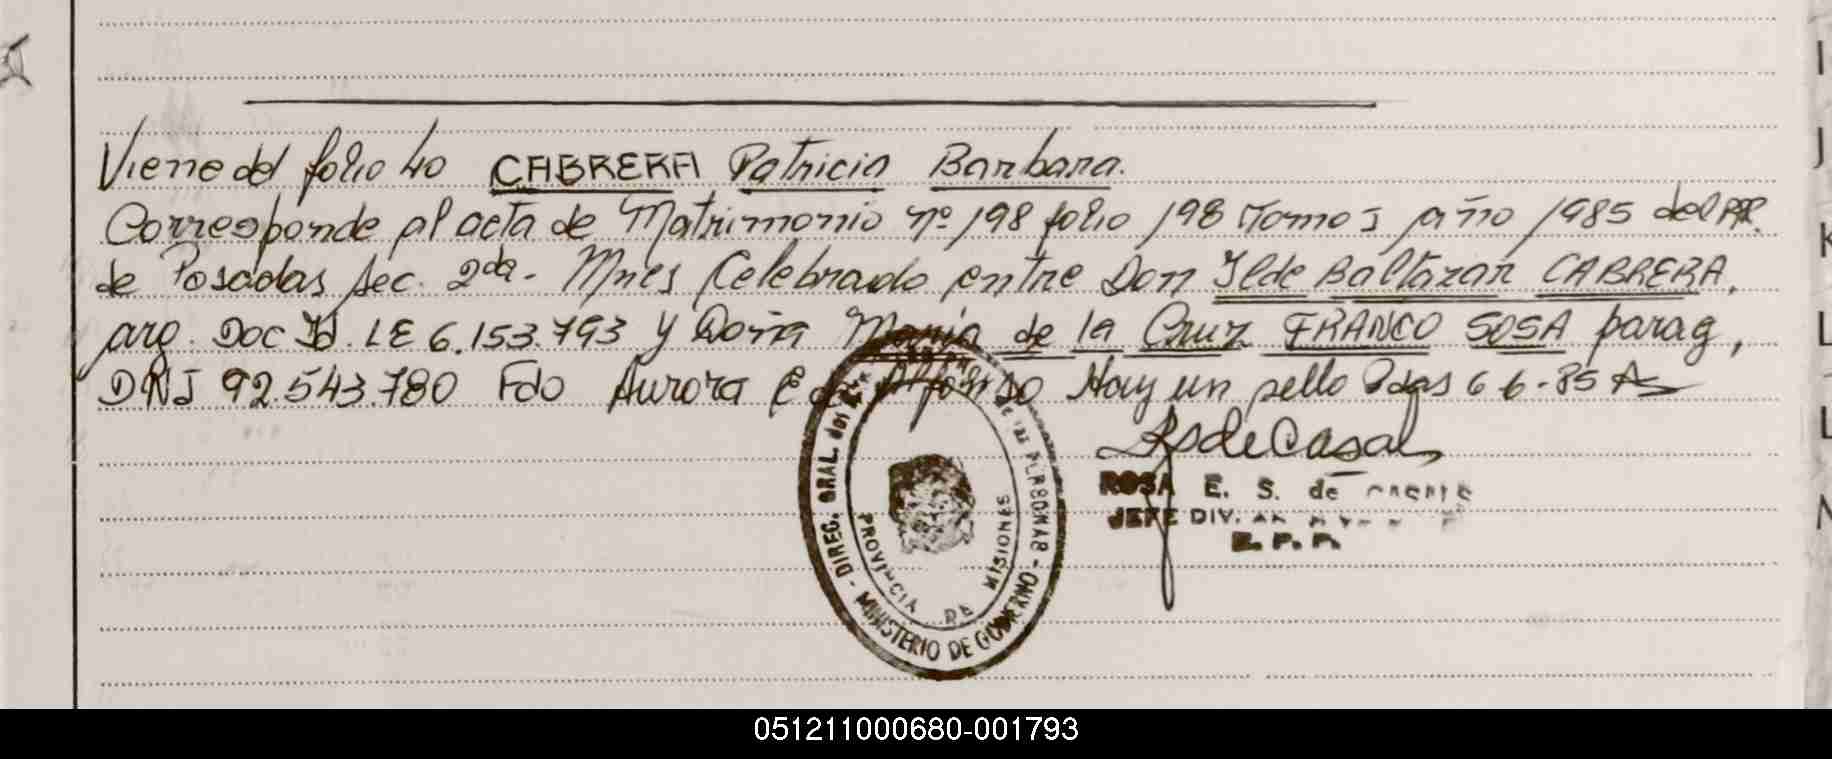 Viene del folio 40 CABRERA Patricia Barbara.
Corresponde al acta de Matrimonio nº 198 folio 198 Tomo I año 1985 del RPP.
de Posadas sec. 2da - Mnes Celebrado entre Don Ilde Baltazar CABRERA,
arg. Doc Id. LE 6.153.793 y Doña Maria de la Cruz FRANCO SOSA parag,
DNI 92.543.780 Fdo Aurora E de Alfonso Hay un sello Pdas 6-6-85
RS de Casal
ROSA E. S. de
JEFE DIV.
R. P. P.
DIREC. GRAL. del DE LAS PERSONAS - MINISTERIO DE GOBIERNO -
PROVINCIA DE MISIONES
051211000680-001793